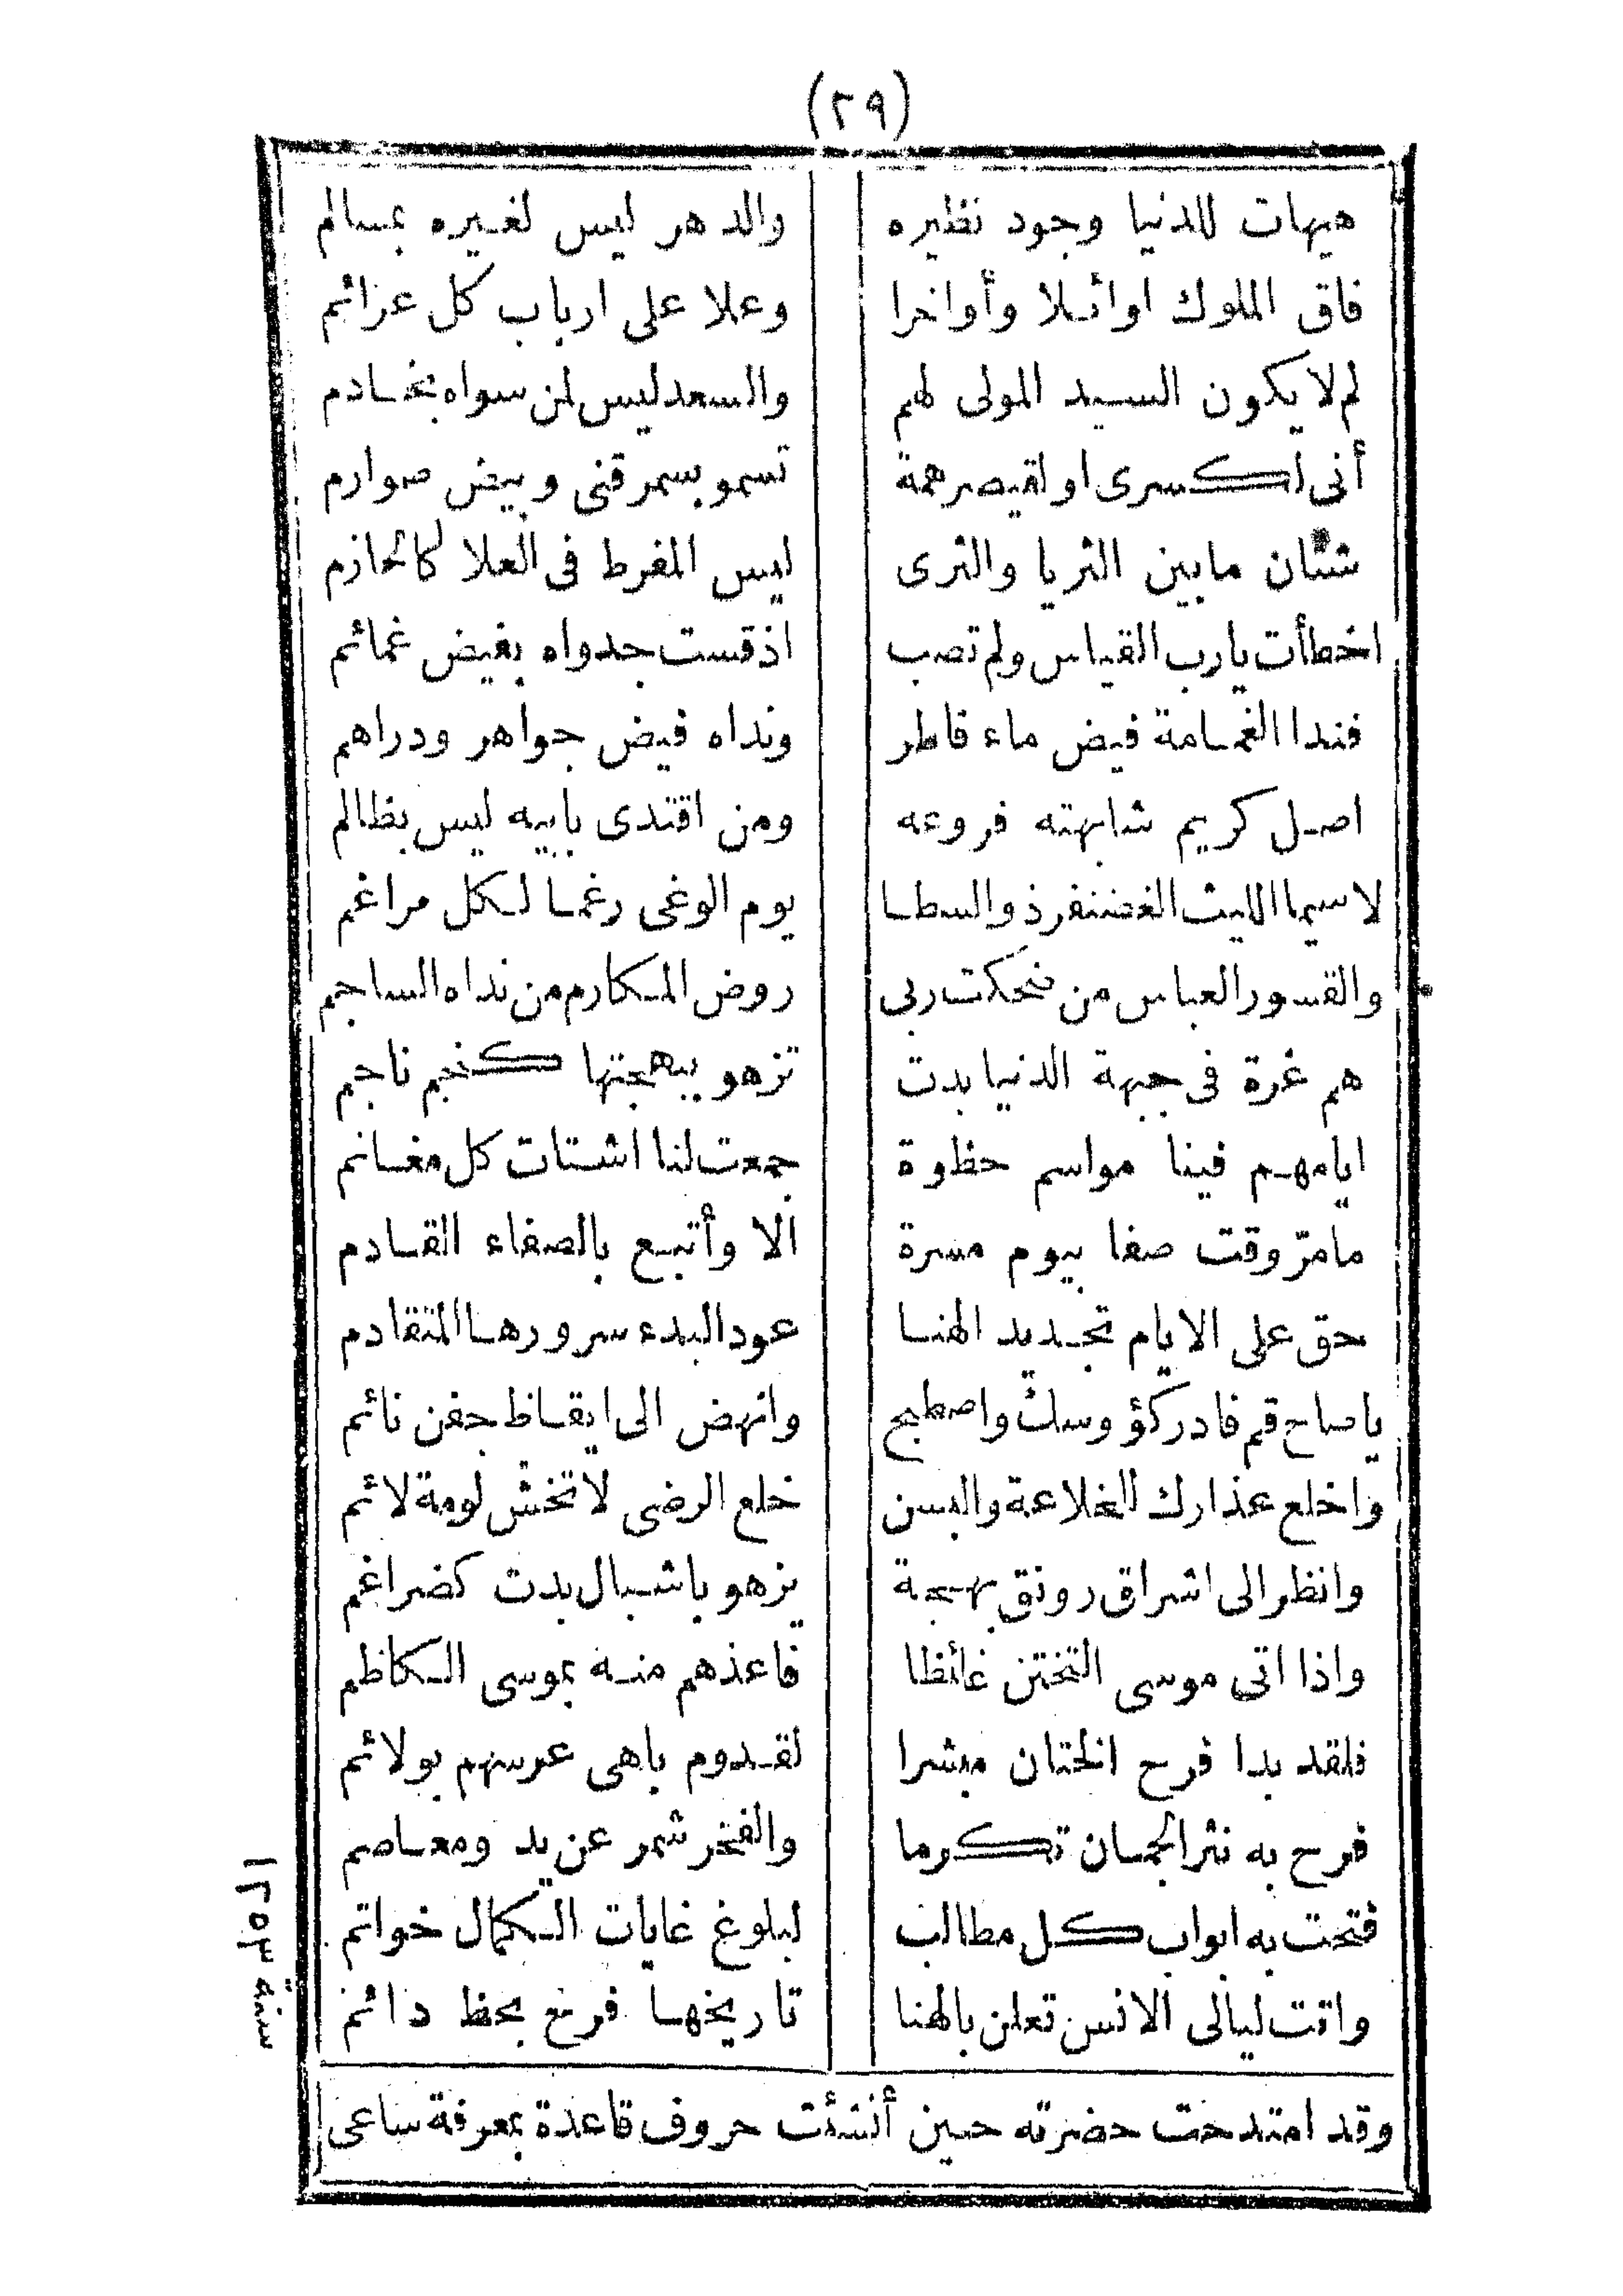 (٢٩)
هيهات للدنيا وجود نظيره والدهر ليس لغيره بمسالم
فاق الملوك اوائلا وأواخرا وعلا على ارباب كل عزائم
لم لا يكون السيد المولى لهم والسعد ليس لمن سواه بخادم
أنى لكسرى او لقيصر همة تسمو بسمر قنى وبيض صوارم
شتان مابين الثريا والثرى ليس المفرط فى العلا كالحازم
اخطأت يارب القياس ولم تصب اذ قست جدواه بفيض غمائم
فندا الغمامة فيض ماء قاطر ونداه فيض جواهر ودراهم
اصل كريم شابهته فروعه ومن اقتدى بابيه ليس بظالم
لاسيما الليث الغضنفر ذو السطا يوم الوغى رغما لكل مراغم
والقسور العباس من ضحكت ربى روض المكارم من نداه الساجم
هم غرة فى جبهة الدنيا بدت تزهو ببهجتها كنجم ناجم
ايامهم فينا مواسم حظوة جمعت لنا اشتات كل مغانم
مامرّ وقت صفا بيوم مسرة الا وأتبع بالصفاء القادم
حق على الايام تجديد الهنا عود البدء سرورها المتقادم
ياصاح قم فادر كؤوسك واصطبح وانهض الى ايقاظ جفن نائم
واخلع عذارك للخلاعة والبسن خلع الرضى لا تخش لومة لائم
وانظر الى اشراق رونق بهجة يزهو باشبال بدت كضراغم
واذا اتى موسى التختن غائظا فاعذهم منه بموسى الكاظم
فلقد بدا فرح الختان مبشرا لقدوم باهى عرسهم بولائم
فرح به نثر الجمان تكرما والفخر شمر عن يد ومعاصم
فتحت به ابواب كل مطالب لبلوغ غايات الكمال خواتم
واتت ليالى الانس تعلن بالهنا تاريخها فرح بحظ دائم
سنة ١٢٥٣
وقد امتدحت حضرته حين أنشئت حروف قاعدة بمعرفة ساعى